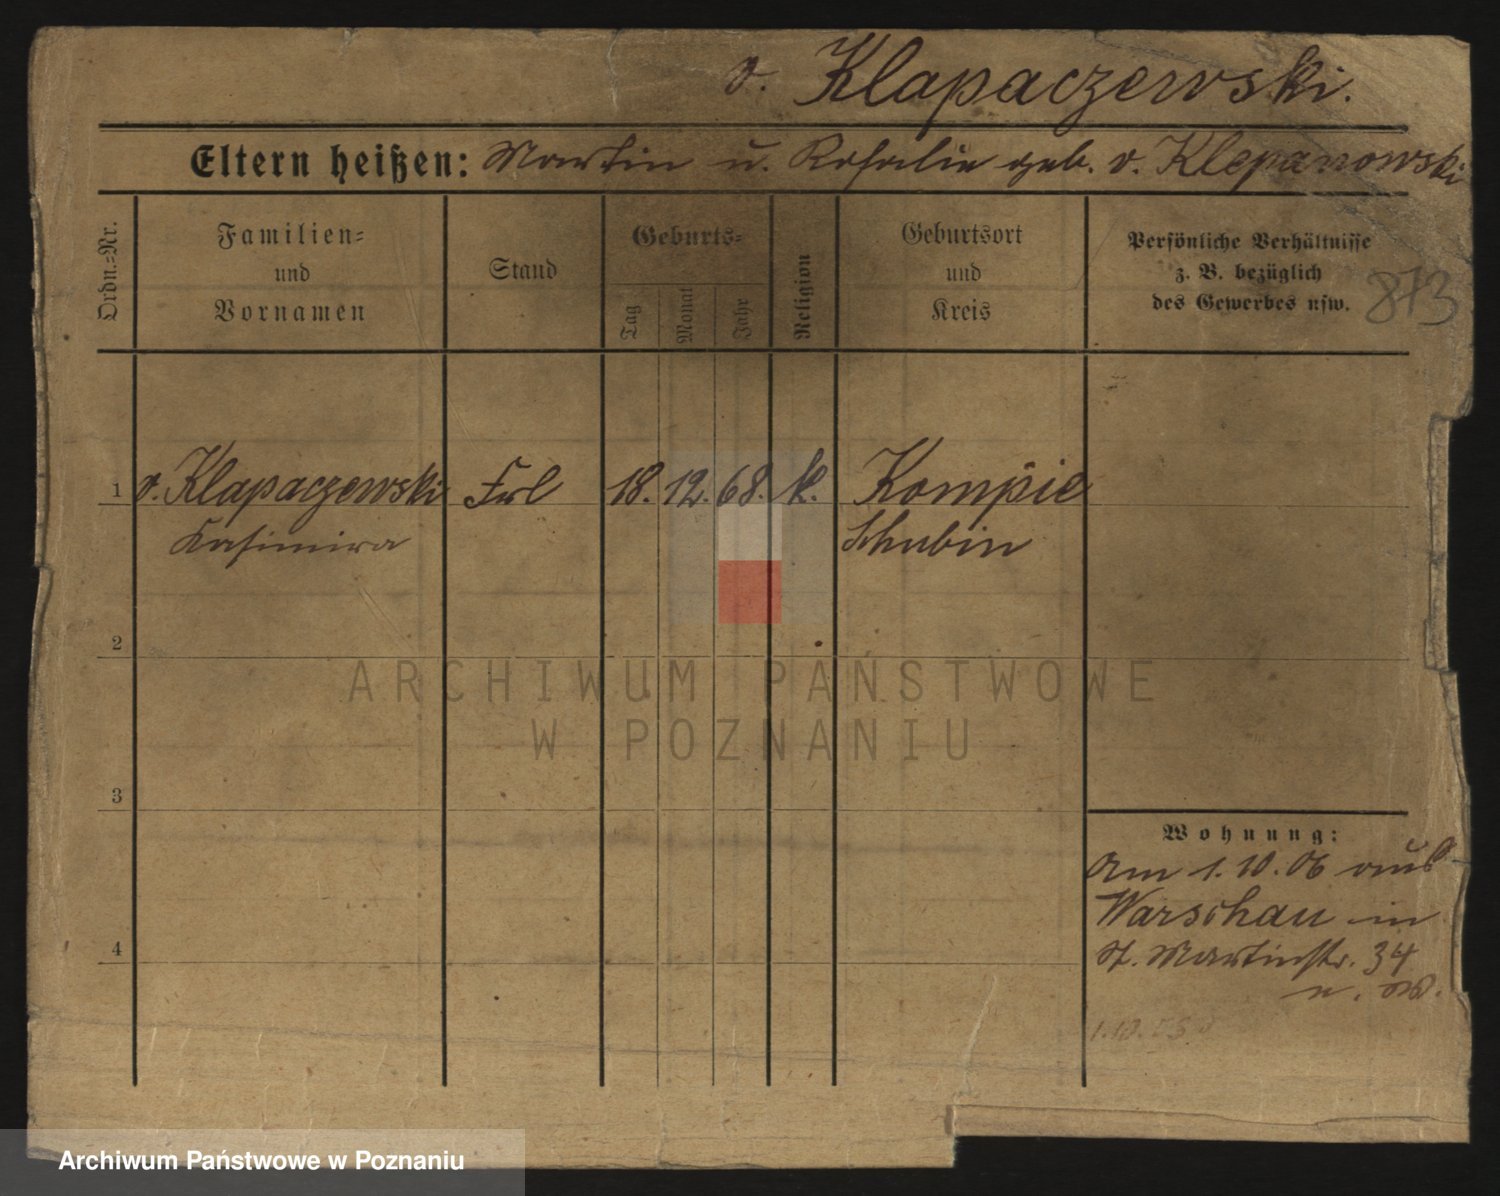 v. Klapaczewski.
Eltern heißen: Martin u. Rosalie geb. v. Klepanowski
Ordn.-Nr.
Familien-
und
Vornamen
Stand
Geburts-
Tag
Monat
Jahr
Religion
Geburtsort
und
Kreis
Persönliche Verhältnisse
z. B. bezüglich
des Gewerbes usw.
873
1 v. Klapaczewski Frl 18. 12. 68. k. Kompie
Kasimira Schubin
2
ARCHIWUM PAŃSTWOWE
W POZNANIU
3
Wohnung:
Am 1.10.06 aus
Warschau in
St. Martinstr. 34
4
Archiwum Państwowe w Poznaniu